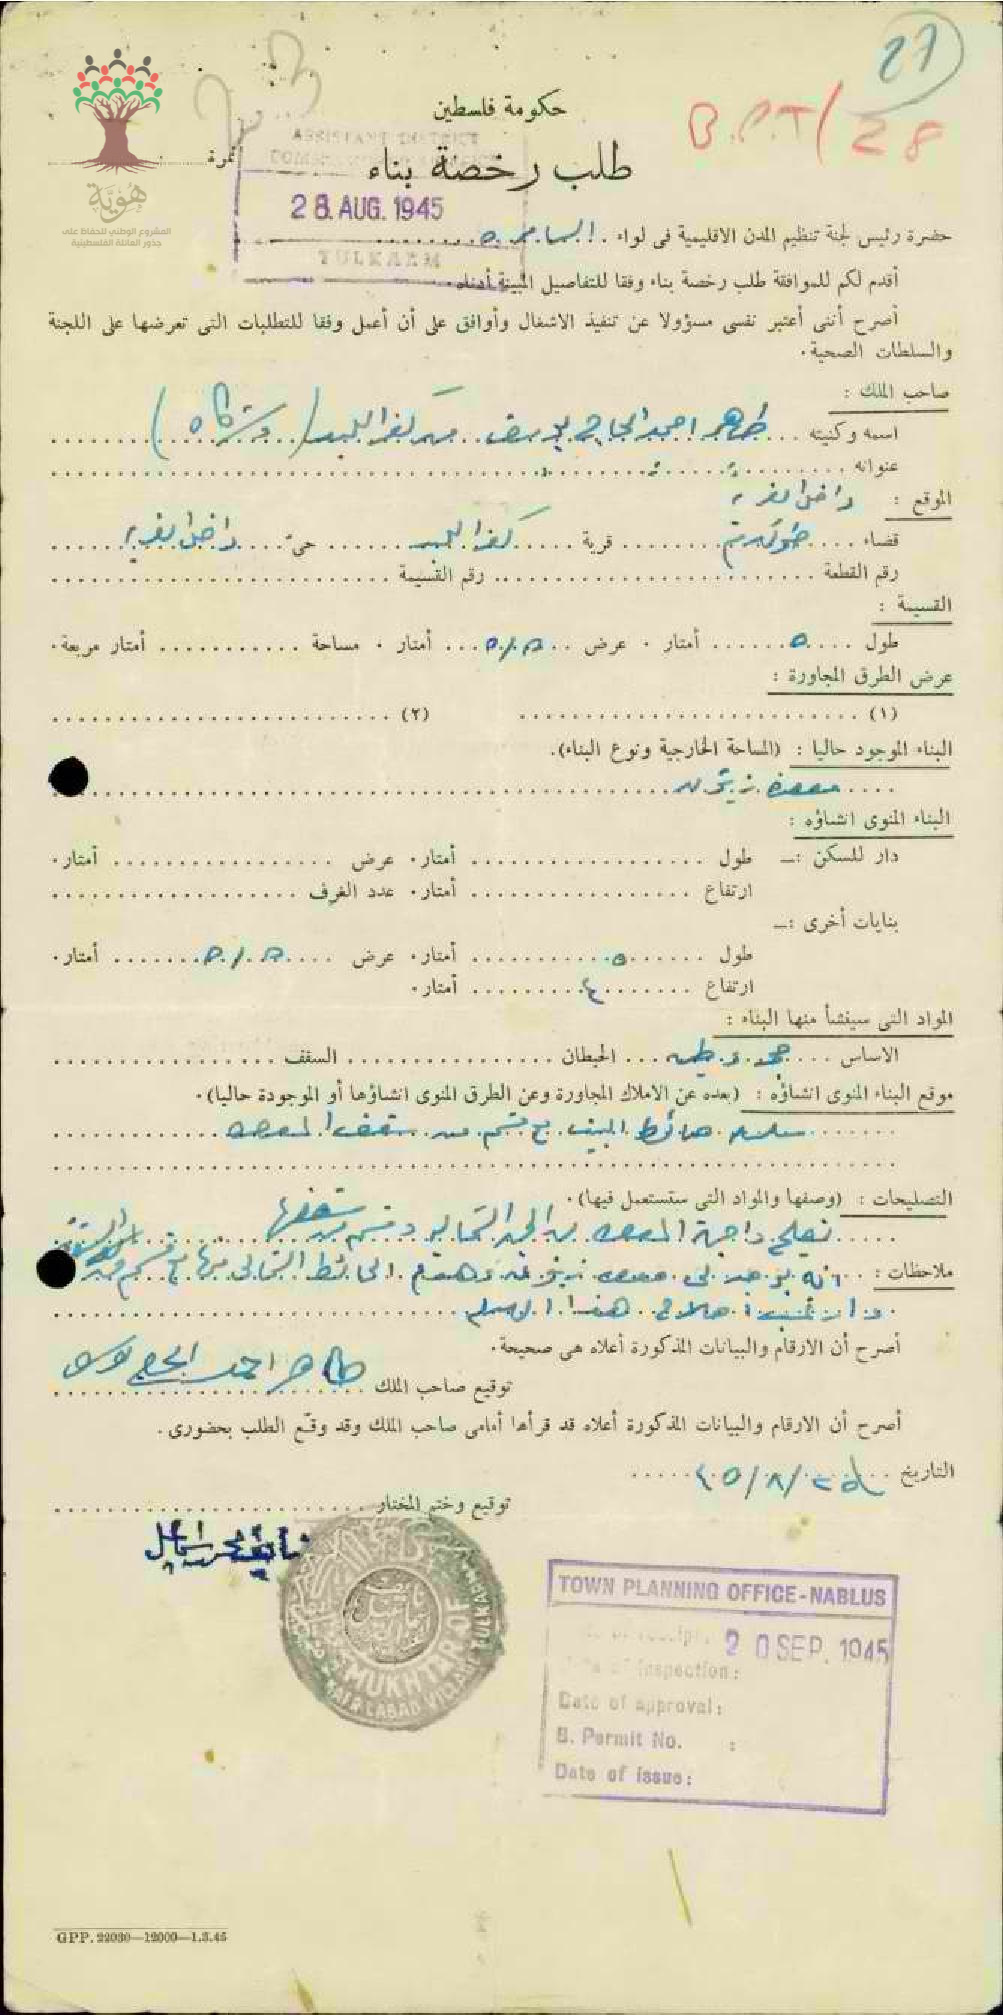 27
B.P.T/28
حكومة فلسطين
ASSISTANT DISTRICT
نمرة
طلب رخصة بناء
28 AUG. 1945
TULKARM
هُوِيَّة
المشروع الوطني للحفاظ على
جذور العائلة الفلسطينية
حضرة رئيس لجنة تنظيم المدن الاقليمية فى لواء السامره
أقدم لكم للموافقة طلب رخصة بناء وفقا للتفاصيل المبينة أدناه.
أصرح أننى أعتبر نفسى مسؤولا عن تنفيذ الاشغال وأوافق على أن أعمل وفقا للمتطلبات التى تعرضها على اللجنة
والسلطات الصحية.
صاحب الملك :
اسمه وكنيته طاهر احمد الحاج يوسف من كفر اللبد (وشركاه)
عنوانه
الموقع : داخل القريه
قضاء طولكرم قرية كفر اللبد حىّ داخل القريه
رقم القطعة رقم القسيمة
القسيمة :
طول ٥ أمتار . عرض أمتار . مساحة أمتار مربعة.
عرض الطرق المجاورة :
(١) (٢)
البناء الموجود حاليا : (المساحة الخارجية ونوع البناء).
معصرة زيتون
البناء المنوى انشاؤه :
دار للسكن :— طول أمتار. عرض أمتار.
ارتفاع أمتار. عدد الغرف
بنايات أخرى :—
طول ٥ أمتار. عرض أمتار.
ارتفاع ٤ أمتار.
المواد التى سينشأ منها البناء :
الاساس حجر وطين الحيطان السقف
موقع البناء المنوى انشاؤه : (بعده عن الاملاك المجاورة وعن الطرق المنوى انشاؤها أو الموجودة حاليا).
حائط البيت مع قسم من سقف المعصره
التصليحات : (وصفها والمواد التى ستستعمل فيها).
تصليح واجهة المعصره من الجهة الشمالية وقسم من سقفها
ملاحظات : انه يوجد لى معصرة زيتون وهدم الحائط الشمالي منها مع قسم من السقف
اصلاح هذا
أصرح أن الارقام والبيانات المذكورة أعلاه هى صحيحة.
توقيع صاحب الملك طاهر احمد الحج يوسف
أصرح أن الارقام والبيانات المذكورة أعلاه قد قرأها أمامى صاحب الملك وقد وقّع الطلب بحضورى.
التاريخ ٤٥/٨/٢٥
توقيع وختم المختار
MUKHTAR OF
KAFR LABAD VILLAGE TULKARM
TOWN PLANNING OFFICE-NABLUS
Date of receipt: 20 SEP. 1945
Date of inspection:
Date of approval:
B. Permit No. :
Date of issue:
GPP. 22030—12000—1.3.45